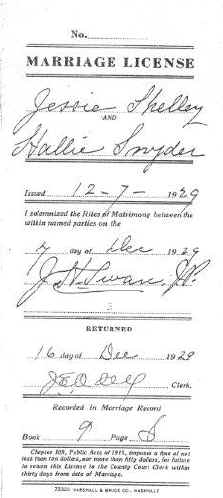 No.
MARRIAGE LICENSE
Jessie Shelley
AND
Hallie Snyder
Issued 12-7- 1929
I solemnized the Rites of Matrimony between the
within named parties on the
7 day of Dec 1929
J. H. Swan, J.P.
RETURNED
16 day of Dec 1929
Clerk.
Recorded in Marriage Record
Book 9 Page
Chapter 109, Public Acts of 1915, imposes a fine of not
less than ten dollars, nor more than fifty dollars, for failure
to return this License to the County Court Clerk within
thirty days from date of Marriage.
MARSHALL & BRUCE CO., NASHVILLE